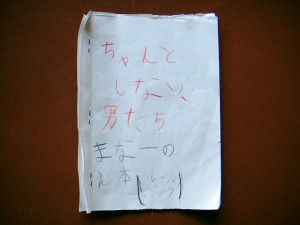 ちゃんと
しない、
男たち
まなーの
え本